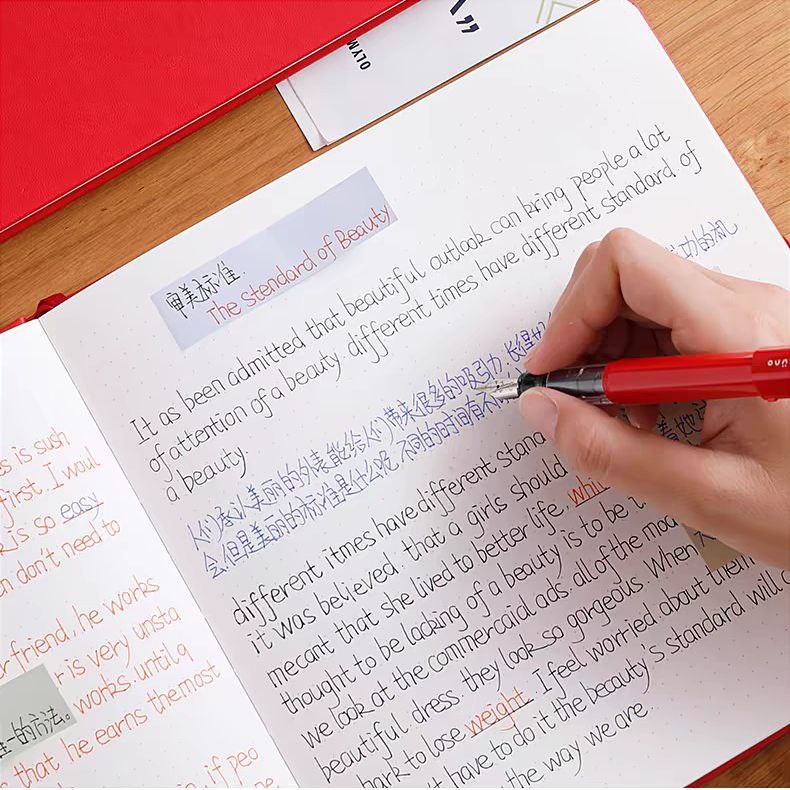 OLYM
审美标准.
The Stendard of Beauty
It as been admitted that beautiful outlook can bring people a lot
of attention of a beauty. different times have different standard of
a beauty.
人们承认美丽的外表能给人们带来很多的吸引力,长得好
成功的机
会,但是美丽的标准是什么呢,不同的时间有不
different itmes have different stana
it was believed. that a girls should
mecant that she lived to better life,
thought to be lacking of a beauty is to be
we look at the commercaial ads. all of the mod
beautiful dress. they look so gorgeous. When
hark to lose weight. I feel worried about them
't have to do it the becauty's standard will c
the way we are
es is sush
first. I woul
R is so easy
en don't need to
r friend, he works
r is very unsta
works. until q
一的方法。
s that he earns the most
if peo
uno